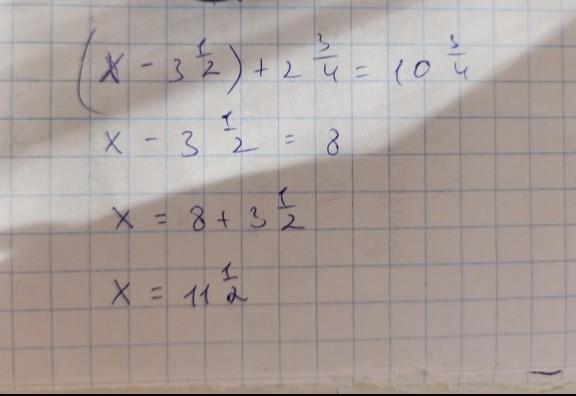 (x - 3 1/2) + 2 3/4 = 10 3/4
x - 3 1/2 = 8
x = 8 + 3 1/2
x = 11 1/2